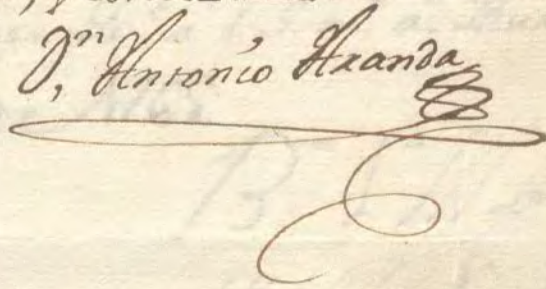 Dn, Antonio Aranda